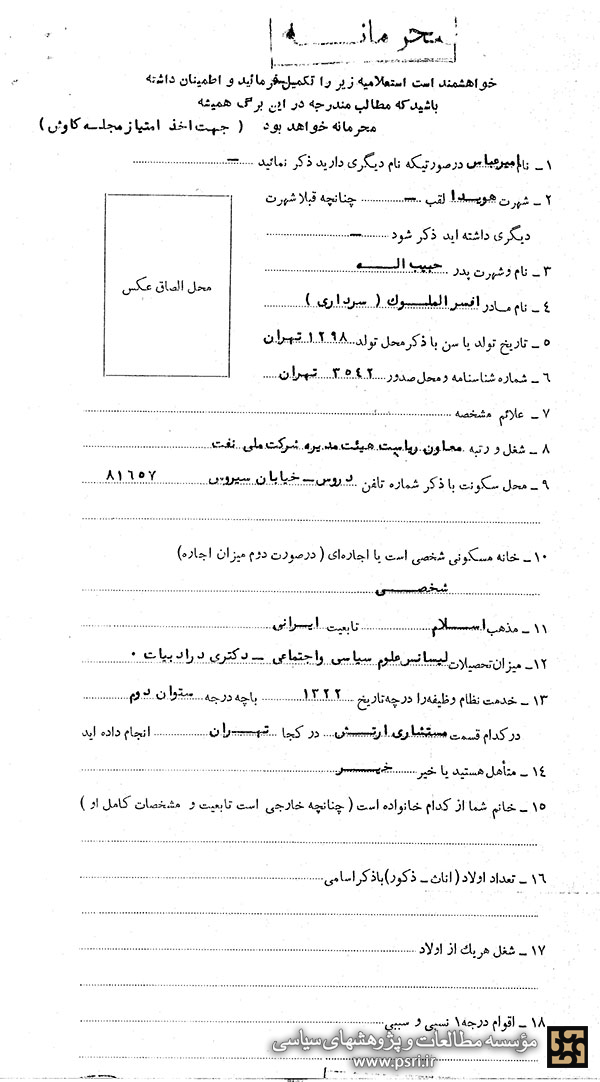 محرمانه
خواهشمند است استعلامیه زیر را تکمیل فرمائید و اطمینان داشته
باشید که مطالب مندرجه در این برگ همیشه
محرمانه خواهد بود ( جهت اخذ امتیاز مجله کاوش )
۱ ـ نام امیرعباس در صورتیکه نام دیگری دارید ذکر نمائید ـ
۲ ـ شهرت هویدا لقب ـ چنانچه قبلا شهرت
دیگری داشته اید ذکر شود ـ
۳ ـ نام و شهرت پدر حبیب اله
۴ ـ نام مادر افسر الملوك ( سرداری )
۵ ـ تاریخ تولد یا سن با ذکر محل تولد ۱۲۹۸ تهران
۶ ـ شماره شناسنامه و محل صدور ۳۵۴۲ تهران
محل الصاق عکس
۷ ـ علائم مشخصه
۸ ـ شغل و رتبه معاون ریاست هیئت مدیره شرکت ملی نفت
۹ ـ محل سکونت با ذکر شماره تلفن دروس ـ خیابان سیروس ۸۱۶۵۷
۱۰ ـ خانه مسکونی شخصی است یا اجاره‌ای ( در صورت دوم میزان اجاره)
شخصی
۱۱ ـ مذهب اسلام تابعیت ایرانی
۱۲ ـ میزان تحصیلات لیسانس علوم سیاسی واجتماعی ـ دکتری در ادبیات ۰
۱۳ ـ خدمت نظام وظیفه را در چه تاریخ ۱۳۲۲ با چه درجه ستوان دوم
در کدام قسمت مستشاری ارتش در کجا تهران انجام داده اید
۱۴ ـ متأهل هستید یا خیر خیر
۱۵ ـ خانم شما از کدام خانواده است ( چنانچه خارجی است تابعیت و مشخصات کامل او )
۱۶ ـ تعداد اولاد ( اناث ـ ذکور) با ذکر اسامی
۱۷ ـ شغل هر یك از اولاد
۱۸ ـ اقوام درجه ۱ نسبی و سببی
مؤسسه مطالعات و پژوهشهای سیاسی
www.psri.ir